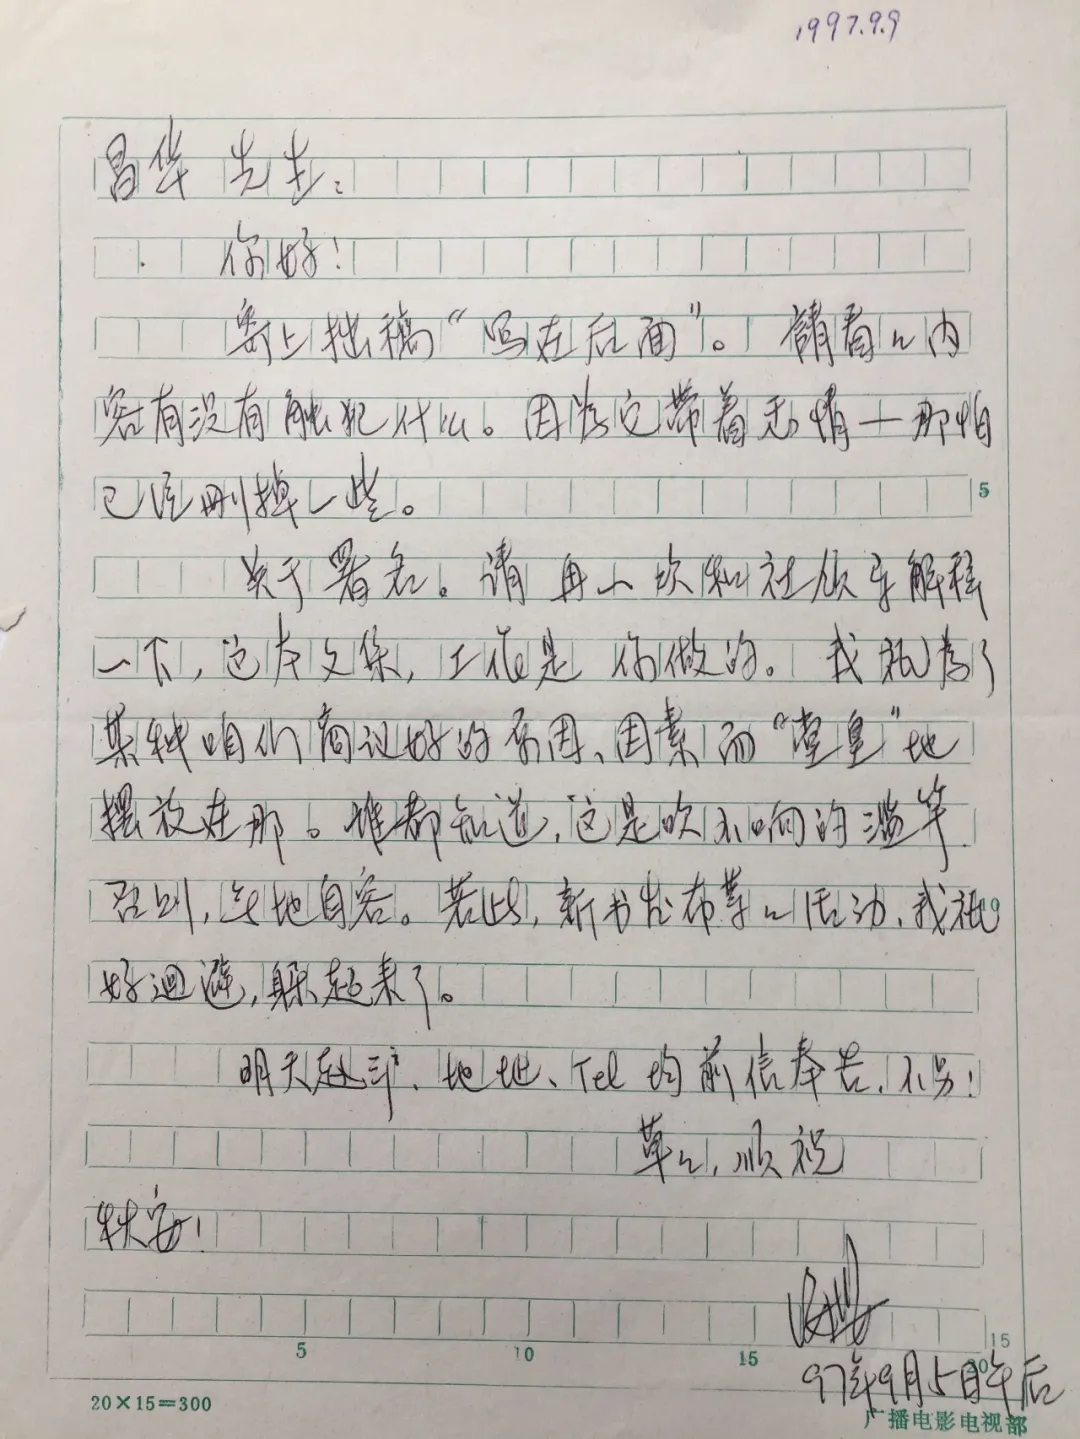 1997.9.9
昌华 先生：
你好！
寄上拙稿“写在后面”。請看々内
容有没有触犯什么。因为它带着悲情——那怕
已经刪掉一些。
关于署名。请再一次和社领导解释
一下，这本文集，工作是你做的。我祇为了
某种咱们商议好的原因、因素而“堂皇”地
摆放在那。谁都知道，这是吹不响的滥竽。
否则，无地自容。若此，新书发布等々活动，我祇
好迴避，躲起来了。
明天赴沪、地址、Tel 均前信奉告，不另！
草々，顺祝
秋安！
97年9月5日午后
5
10
15
5
10
15
20
20×15=300
广播电影电视部